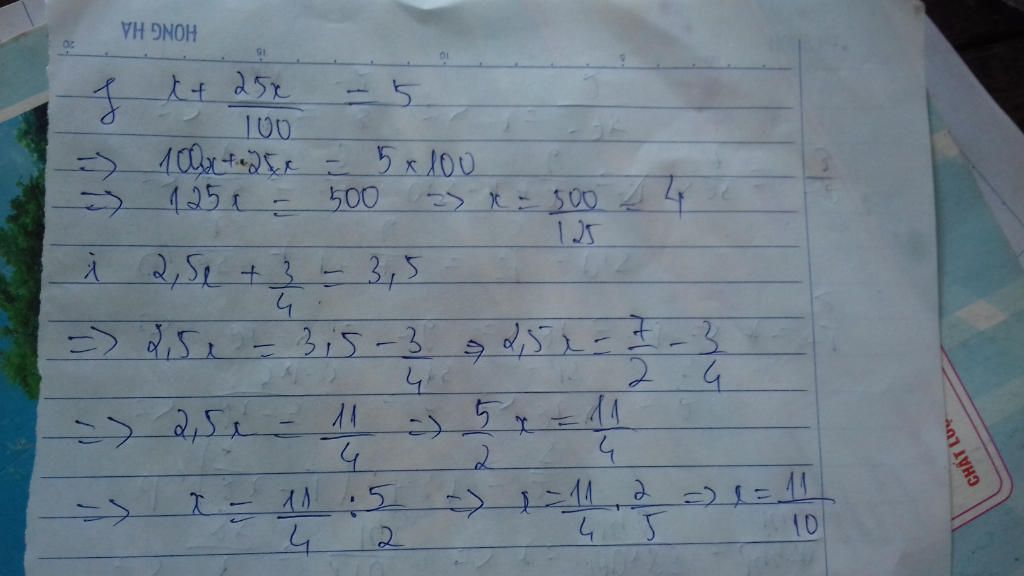 HONG HA
20 15 10 5
f x + 25x/100 = 5
=> 100x + 25x = 5 x 100
=> 125x = 500 => x = 500/125 = 4
i 2,5x + 3/4 = 3,5
=> 2,5x = 3,5 - 3/4 => 2,5x = 7/2 - 3/4
=> 2,5x = 11/4 => 5/2 x = 11/4
=> x = 11/4 : 5/2 => x = 11/4 . 2/5 => x = 11/10
CHẤT LƯỢ